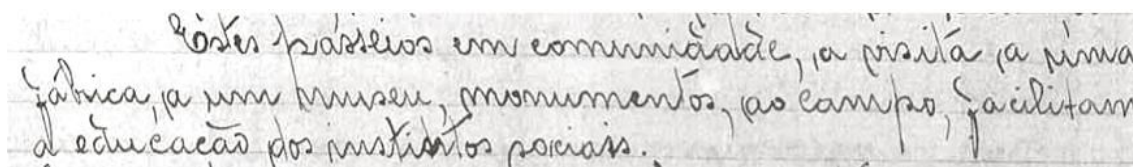 Estes passeios em comunidade, a visita a uma
fábrica, a um museu, monumentos, ao campo, facilitam
a educação dos instintos sociais.